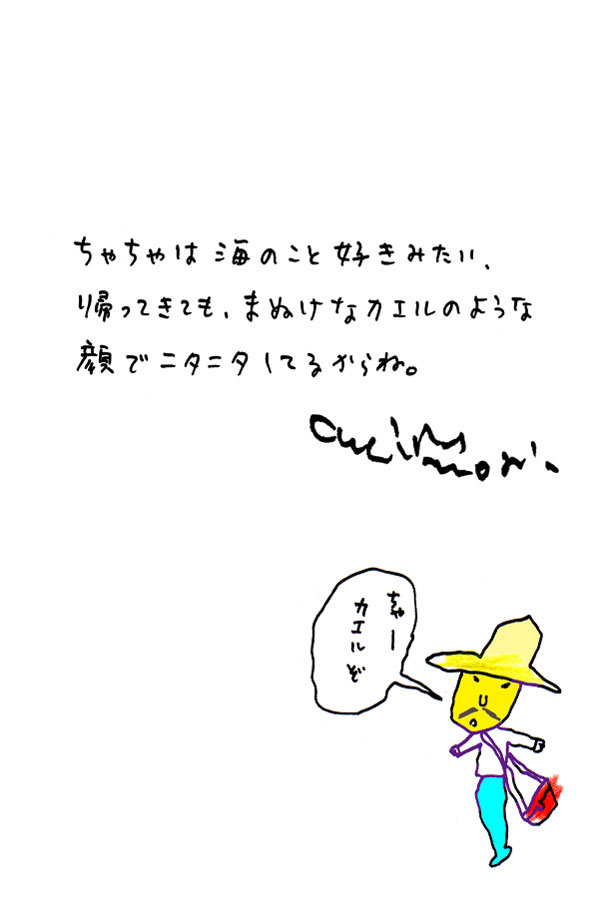 ちゃちゃは海のこと好きみたい、
帰ってきても、まぬけなカエルのような
顔でニタニタしてるからね。
ちゃー
カエルぞ